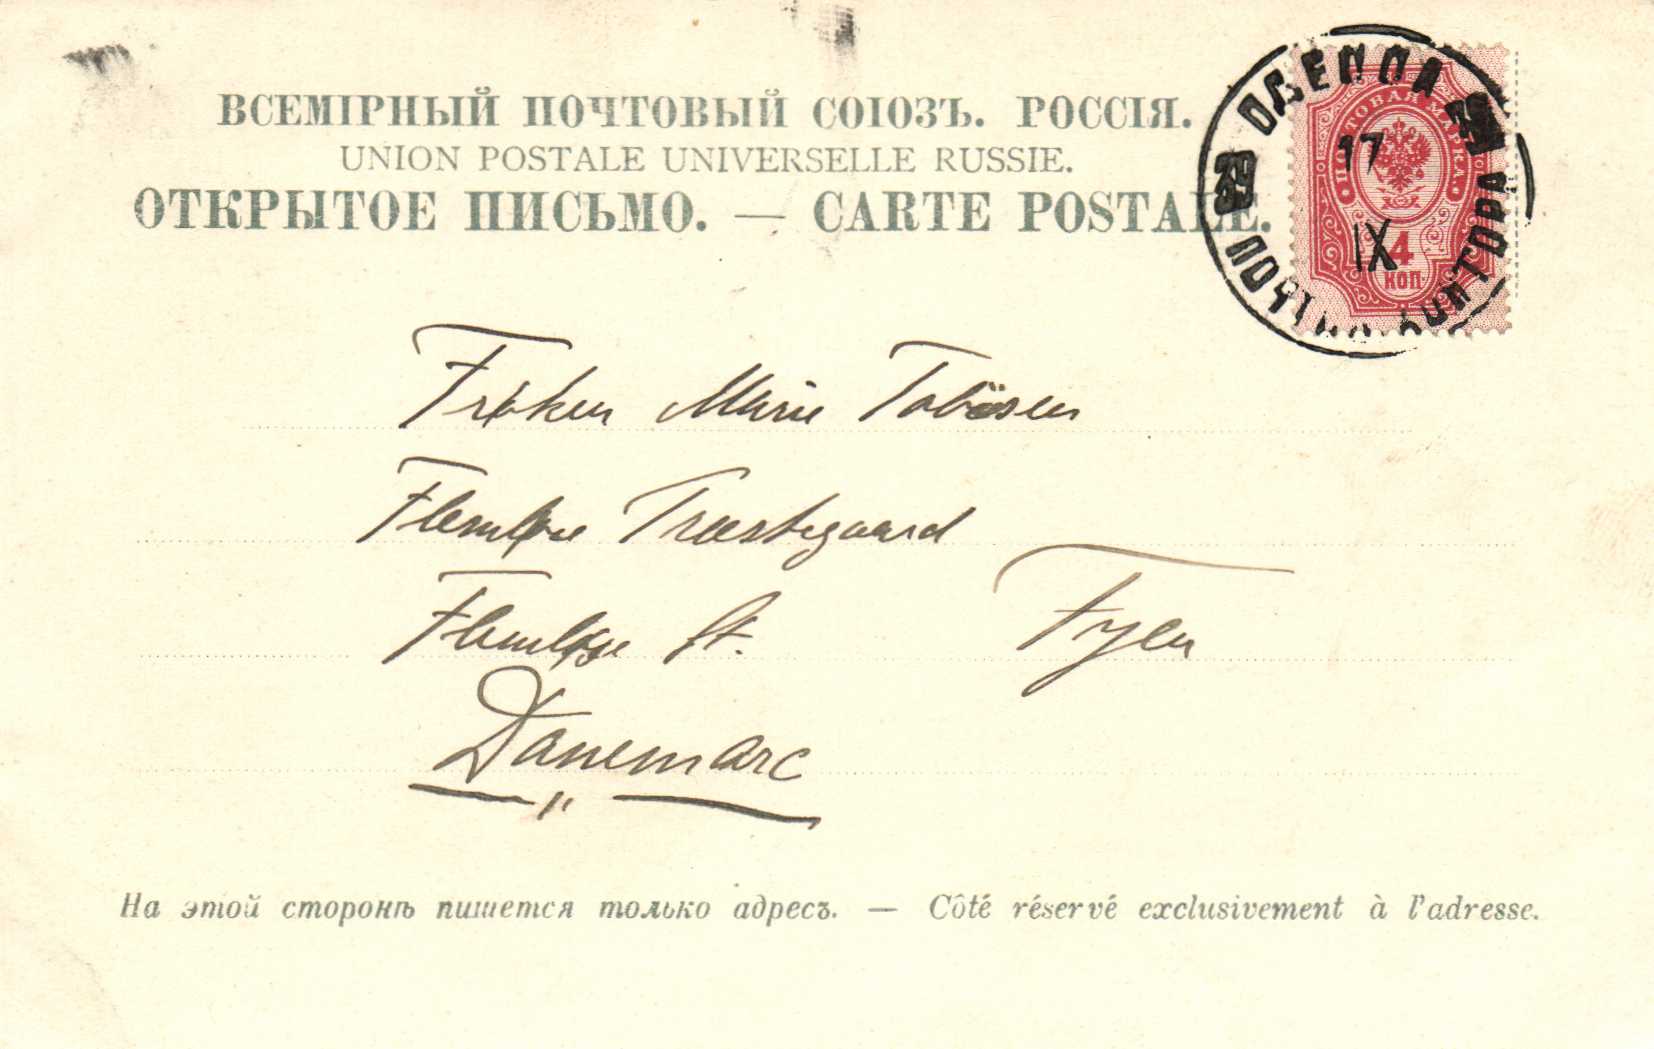 ВСЕМІРНЫЙ ПОЧТОВЫЙ СОЮЗЪ. РОССІЯ.
UNION POSTALE UNIVERSELLE RUSSIE.
ОТКРЫТОЕ ПИСЬМО. — CARTE POSTALE.
ОДЕССА
17
IX
39
ПОЧТОВАЯ МАРКА
4
КОП
ПОЧТ. КОНТОРА
Frøken Marie Tobiesen
Flemløse Træstegaard
Flemløse St. Fyen
Danemarc
На этой сторонѣ пишется только адресъ. — Côté réservé exclusivement à l'adresse.